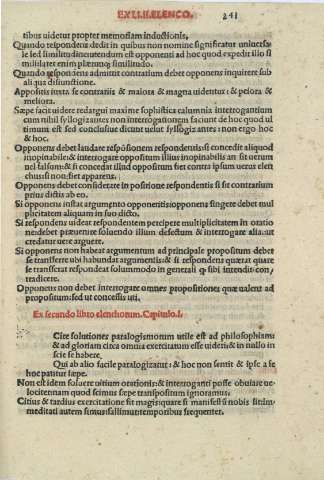 EX LI.II.ELENCO. 241
tibus uidetur propter memoriam inductionis,
Quando respondens dedit in quibus non nomine significatur uniuersa
le sed similitu dine utendum est opponenti ad hoc quod expedit illo si
militer enim plærunq; similitudo.
Quando respondens admittit contrarium debet opponens inquirere sub
aliqua disiunctione.
Appositis iuxta se contrariis & maiora & magna uidentur: & peiora &
meliora.
Sæpe facit uidere redargui maxime sophistica calumnia interrogantium
cum nihil syllogizantes non interrogationem faciunt de hoc quod ul
timum est sed conclusiue dicunt uelut syllogizantes: non ergo hoc
& hoc.
Opponens debet laudare responsionem respondentis: si concedit aliquod
inopinabile: & interrogare oppositum illius inopinabilis an sit uerum
uel falsum: & si concedat illud oppositum fiet contra ipsum uerus elen
chus: si non: fiet apparens.
Opponens debet considerare in positione respondentis si sit contrarium
prius dictis ab eo.
Si opponens instat argumento opponentis: opponens fingere debet mul
plicitatem aliquam in suo dicto.
Si respondens uidet respondentem percipere multiplicitatem in oratio
ne: debet præuenire soluendo illum defectum & interrogare alia: ut
credatur uere arguere.
Si opponens non habeat argumentum ad principale propositum debet
se transferre ubi habundat argumentis: & si respondens quærat quare
se transferat respondeat solummodo in generali q̃ sibi intendit con
tradicere.
Opponens non debet interrogare omnes propositiones quæ ualent ad
propositum: sed ut concessis uti.
Ex secundo libro elenchorum. Capitulo.I.
Cire solutiones paralogismorum utile est ad philosophiam:
& ad gloriam circa omnia exercitatum esse uideri: & in nullo in
scie se habere.
Qui ab alio facile paralogizatur: & hoc non sentit & ipse a se
hoc patitur sæpe.
Non est idem soluere uitium orationis: & interroganti posse obuiare ue
lociter nam quod scimus sæpe transpositum ignoramus.
Citius & tardius exercitatione fit magis: quare si manifestum nobis sit: im
meditati autem simus: fallimur temporibus frequenter.